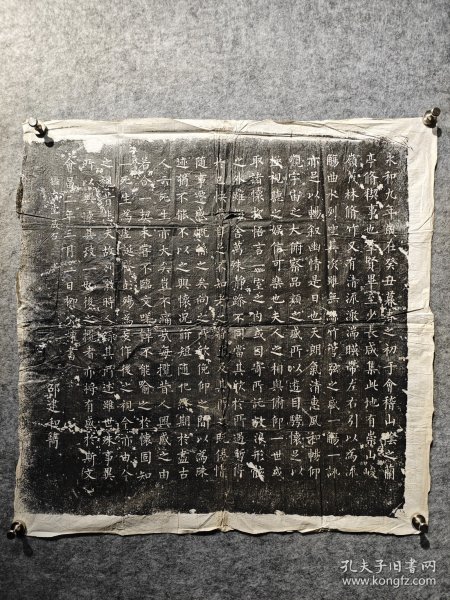 永和九年歲在癸丑暮春之初于會稽山陰之蘭
亭脩稧事也群賢畢至少長咸集此地有崇山峻
嶺茂林脩竹又有清流激湍暎帶左右引以為流
觴曲水列坐其次雖無絲竹管弦之盛一觴一詠
亦足以暢叙幽情是日也天朗氣清惠風和暢仰
觀宇宙之大俯察品類之盛所以遊目騁懷足以
極視聽之娛信可樂也夫人之相與俯仰一世或
取諸懷抱悟言一室之內或因寄所託放浪形骸
之外雖趣舍萬殊靜躁不同當其欣於所遇暫得
於己快然自足不知老之將至及其所之既倦情
隨事遷感慨係之矣向之所欣俛仰之間以為陳
迹猶不能不以之興懷況脩短隨化終期於盡古
人云死生亦大矣豈不痛哉每攬昔人興感之由
若合一契未嘗不臨文嗟悼不能喻之於懷固知
一死生為虛誕齊彭殤為妄作後之視今亦由今
之視昔悲夫故列叙時人錄其所述雖世殊事異
所以興懷其致一也後之覽者亦將有感於斯文
會昌年三月一日柳書
邵建和鐫
孔夫子旧书网
www.kongfz.com